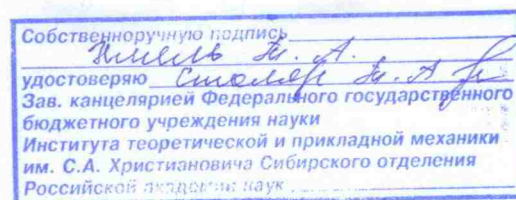 Собственноручную подпись
Хмель Т. А.
удостоверяю
Зав. канцелярией Федерального государственного
бюджетного учреждения науки
Института теоретической и прикладной механики
им. С.А. Христиановича Сибирского отделения
Российской академии наук